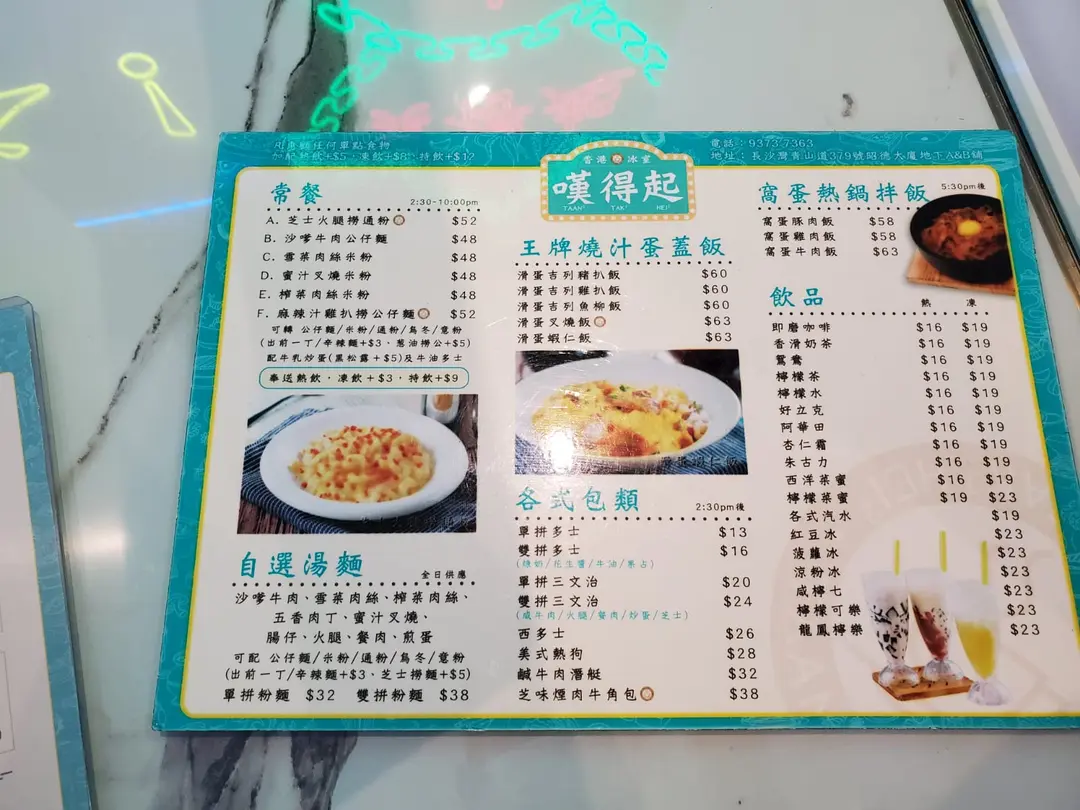 凡惠顧任何單點食物
加配熱飲+$5，凍飲+$8，特飲+$12
香港 冰室
嘆得起
TAAN³ TAK¹ HEI²
電話：9373 7363
地址：長沙灣青山道379號昭德大廈地下A&B舖
常餐 2:30-10:00pm
A. 芝士火腿撈通粉 $52
B. 沙嗲牛肉公仔麵 $48
C. 雪菜肉絲米粉 $48
D. 蜜汁叉燒米粉 $48
E. 榨菜肉絲米粉 $48
F. 麻辣汁雞扒撈公仔麵 $52
可轉 公仔麵/米粉/通粉/烏冬/意粉
(出前一丁/辛辣麵+$3、葱油撈公+$5)
配牛乳炒蛋(黑松露+$5)及牛油多士
奉送熱飲，凍飲+$3，特飲+$9
自選湯麵 全日供應
沙嗲牛肉、雪菜肉絲、榨菜肉絲、
五香肉丁、蜜汁叉燒、
腸仔、火腿、餐肉、煎蛋
可配 公仔麵/米粉/通粉/烏冬/意粉
(出前一丁/辛辣麵+$3、芝士撈麵+$5)
單拼粉麵 $32 雙拼粉麵 $38
王牌燒汁蛋蓋飯
滑蛋吉列豬扒飯 $60
滑蛋吉列雞扒飯 $60
滑蛋吉列魚柳飯 $60
滑蛋叉燒飯 $63
滑蛋蝦仁飯 $63
各式包類 2:30pm後
單拼多士 $13
雙拼多士 $16
(煉奶/花生醬/牛油/果占)
單拼三文治 $20
雙拼三文治 $24
(咸牛肉/火腿/餐肉/炒蛋/芝士)
西多士 $26
美式熱狗 $28
鹹牛肉潛艇 $32
芝味煙肉牛角包 $38
窩蛋熱鍋拌飯 5:30pm後
窩蛋豚肉飯 $58
窩蛋雞肉飯 $58
窩蛋牛肉飯 $63
飲品 熱 凍
即磨咖啡 $16 $19
香滑奶茶 $16 $19
鴛鴦 $16 $19
檸檬茶 $16 $19
檸檬水 $16 $19
好立克 $16 $19
阿華田 $16 $19
杏仁霜 $16 $19
朱古力 $16 $19
西洋菜蜜 $16 $19
檸檬菜蜜 $19 $23
各式汽水 $19
紅豆冰 $23
菠蘿冰 $23
涼粉冰 $23
咸檸七 $23
檸檬可樂 $23
龍鳳檸樂 $23